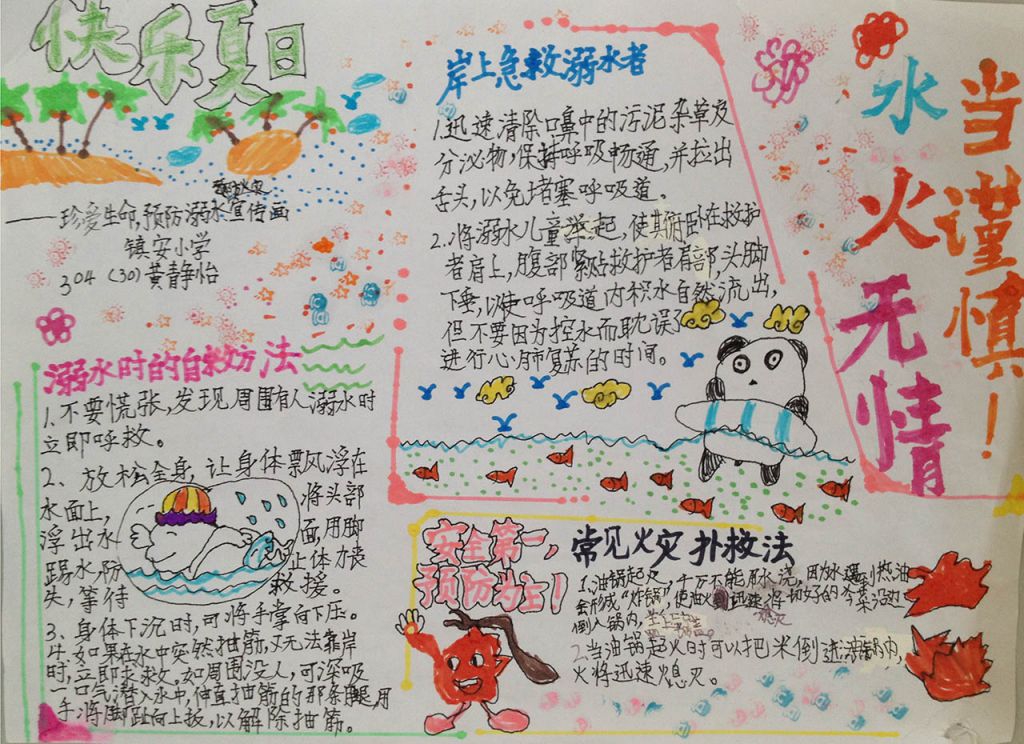 快乐夏日
——珍爱生命,预防溺水宣传画
镇安小学
304 (30) 黄静怡
溺水时的自救方法
1、不要慌张,发现周围有人溺水时
立即呼救。
2、放松全身,让身体飘浮在
水面上,将头部
浮出水面,用脚
踢水,防止体力丧
失,等待救援。
3、身体下沉时,可将手掌向下压。
4、如果在水中突然抽筋,又无法靠岸
时,立即求救,如周围没人,可深吸
一口气潜入水中,伸直抽筋的那条腿,用
手将脚趾向上扳,以解除抽筋。
岸上急救溺水者
1.迅速清除口鼻中的污泥杂草及
分泌物,保持呼吸畅通,并拉出
舌头,以免堵塞呼吸道。
2.将溺水儿童举起,使其俯卧在救护
者肩上,腹部紧贴救护者肩部,头脚
下垂,以使呼吸道内积水自然流出,
但不要因为控水而耽误了
进行心肺复苏的时间。
水火无情
当谨慎!
安全第一,
预防为主!
常见火灾扑救法
1.油锅起火,千万不能用水浇,因为水遇到热油
会形成“炸锅”,使油火迅速将切好的冷菜沿边
倒入锅内,
2.当油锅起火时可以把米倒进锅内,
火将迅速熄灭。